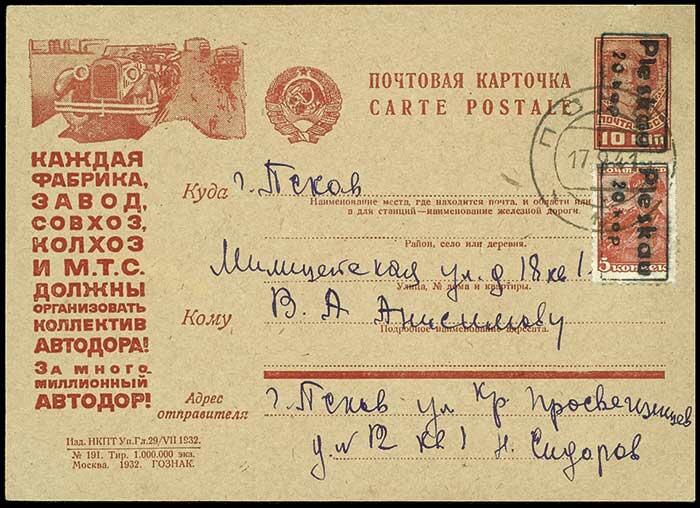 ПОЧТОВАЯ КАРТОЧКА
CARTE POSTALE
Pleskau
20 kop
ПОЧТА
10
17.9.41
Pleskau
20 kop
5 КОПЕЕК
КАЖДАЯ
ФАБРИКА,
ЗАВОД,
СОВХОЗ,
КОЛХОЗ
И М.Т.С.
ДОЛЖНЫ
ОРГАНИЗОВАТЬ
КОЛЛЕКТИВ
АВТОДОРА!
ЗА МНОГО-
МИЛЛИОННЫЙ
АВТОДОР!
Изд. НКПТ Уп.Гл.29/VII 1932.
№ 191. Тир. 1.000.000 экз.
Москва. 1932. ГОЗНАК.
Куда г. Псков
Наименование места, где находится почта, и области или
в для станций—наименование железной дороги.
Район, село или деревня.
Милицейская ул. д 18 кв 1
Улица, № дома и квартиры.
Кому В. А Анисимову
Подробное наименование адресата.
Адрес
отправителя
г. Псков ул Кр Просвещенцев
д. № 12 кв 1 Н. Сидоров